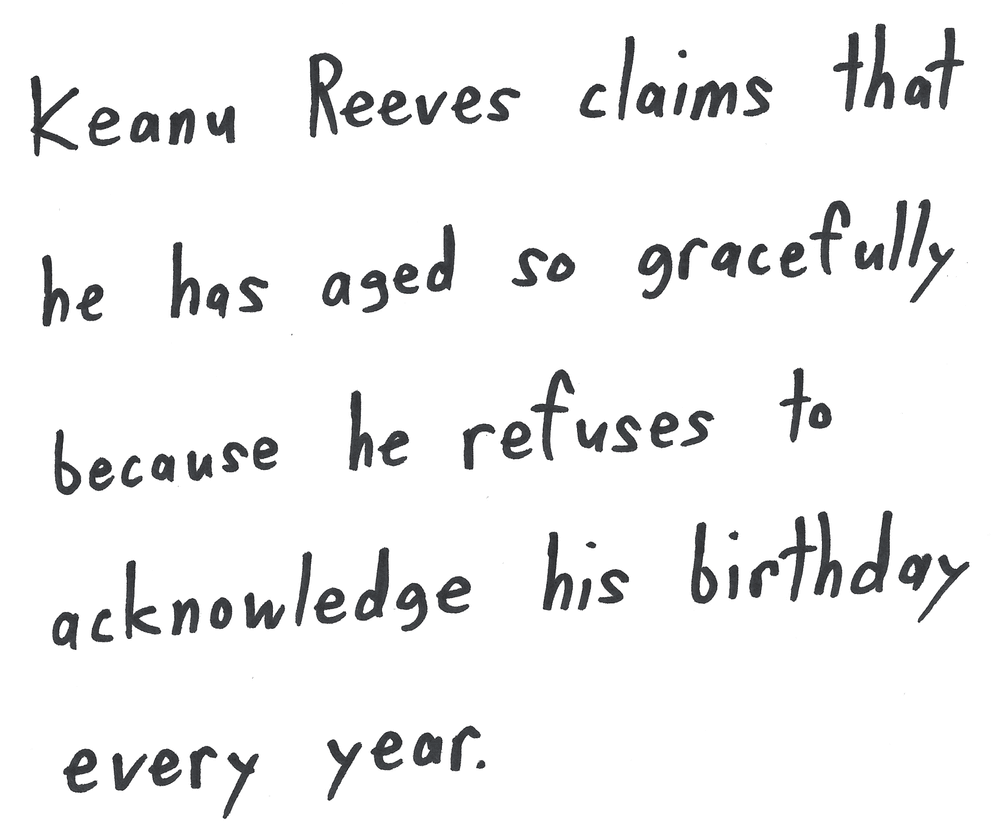 Keanu Reeves claims that
he has aged so gracefully
because he refuses to
acknowledge his birthday
every year.